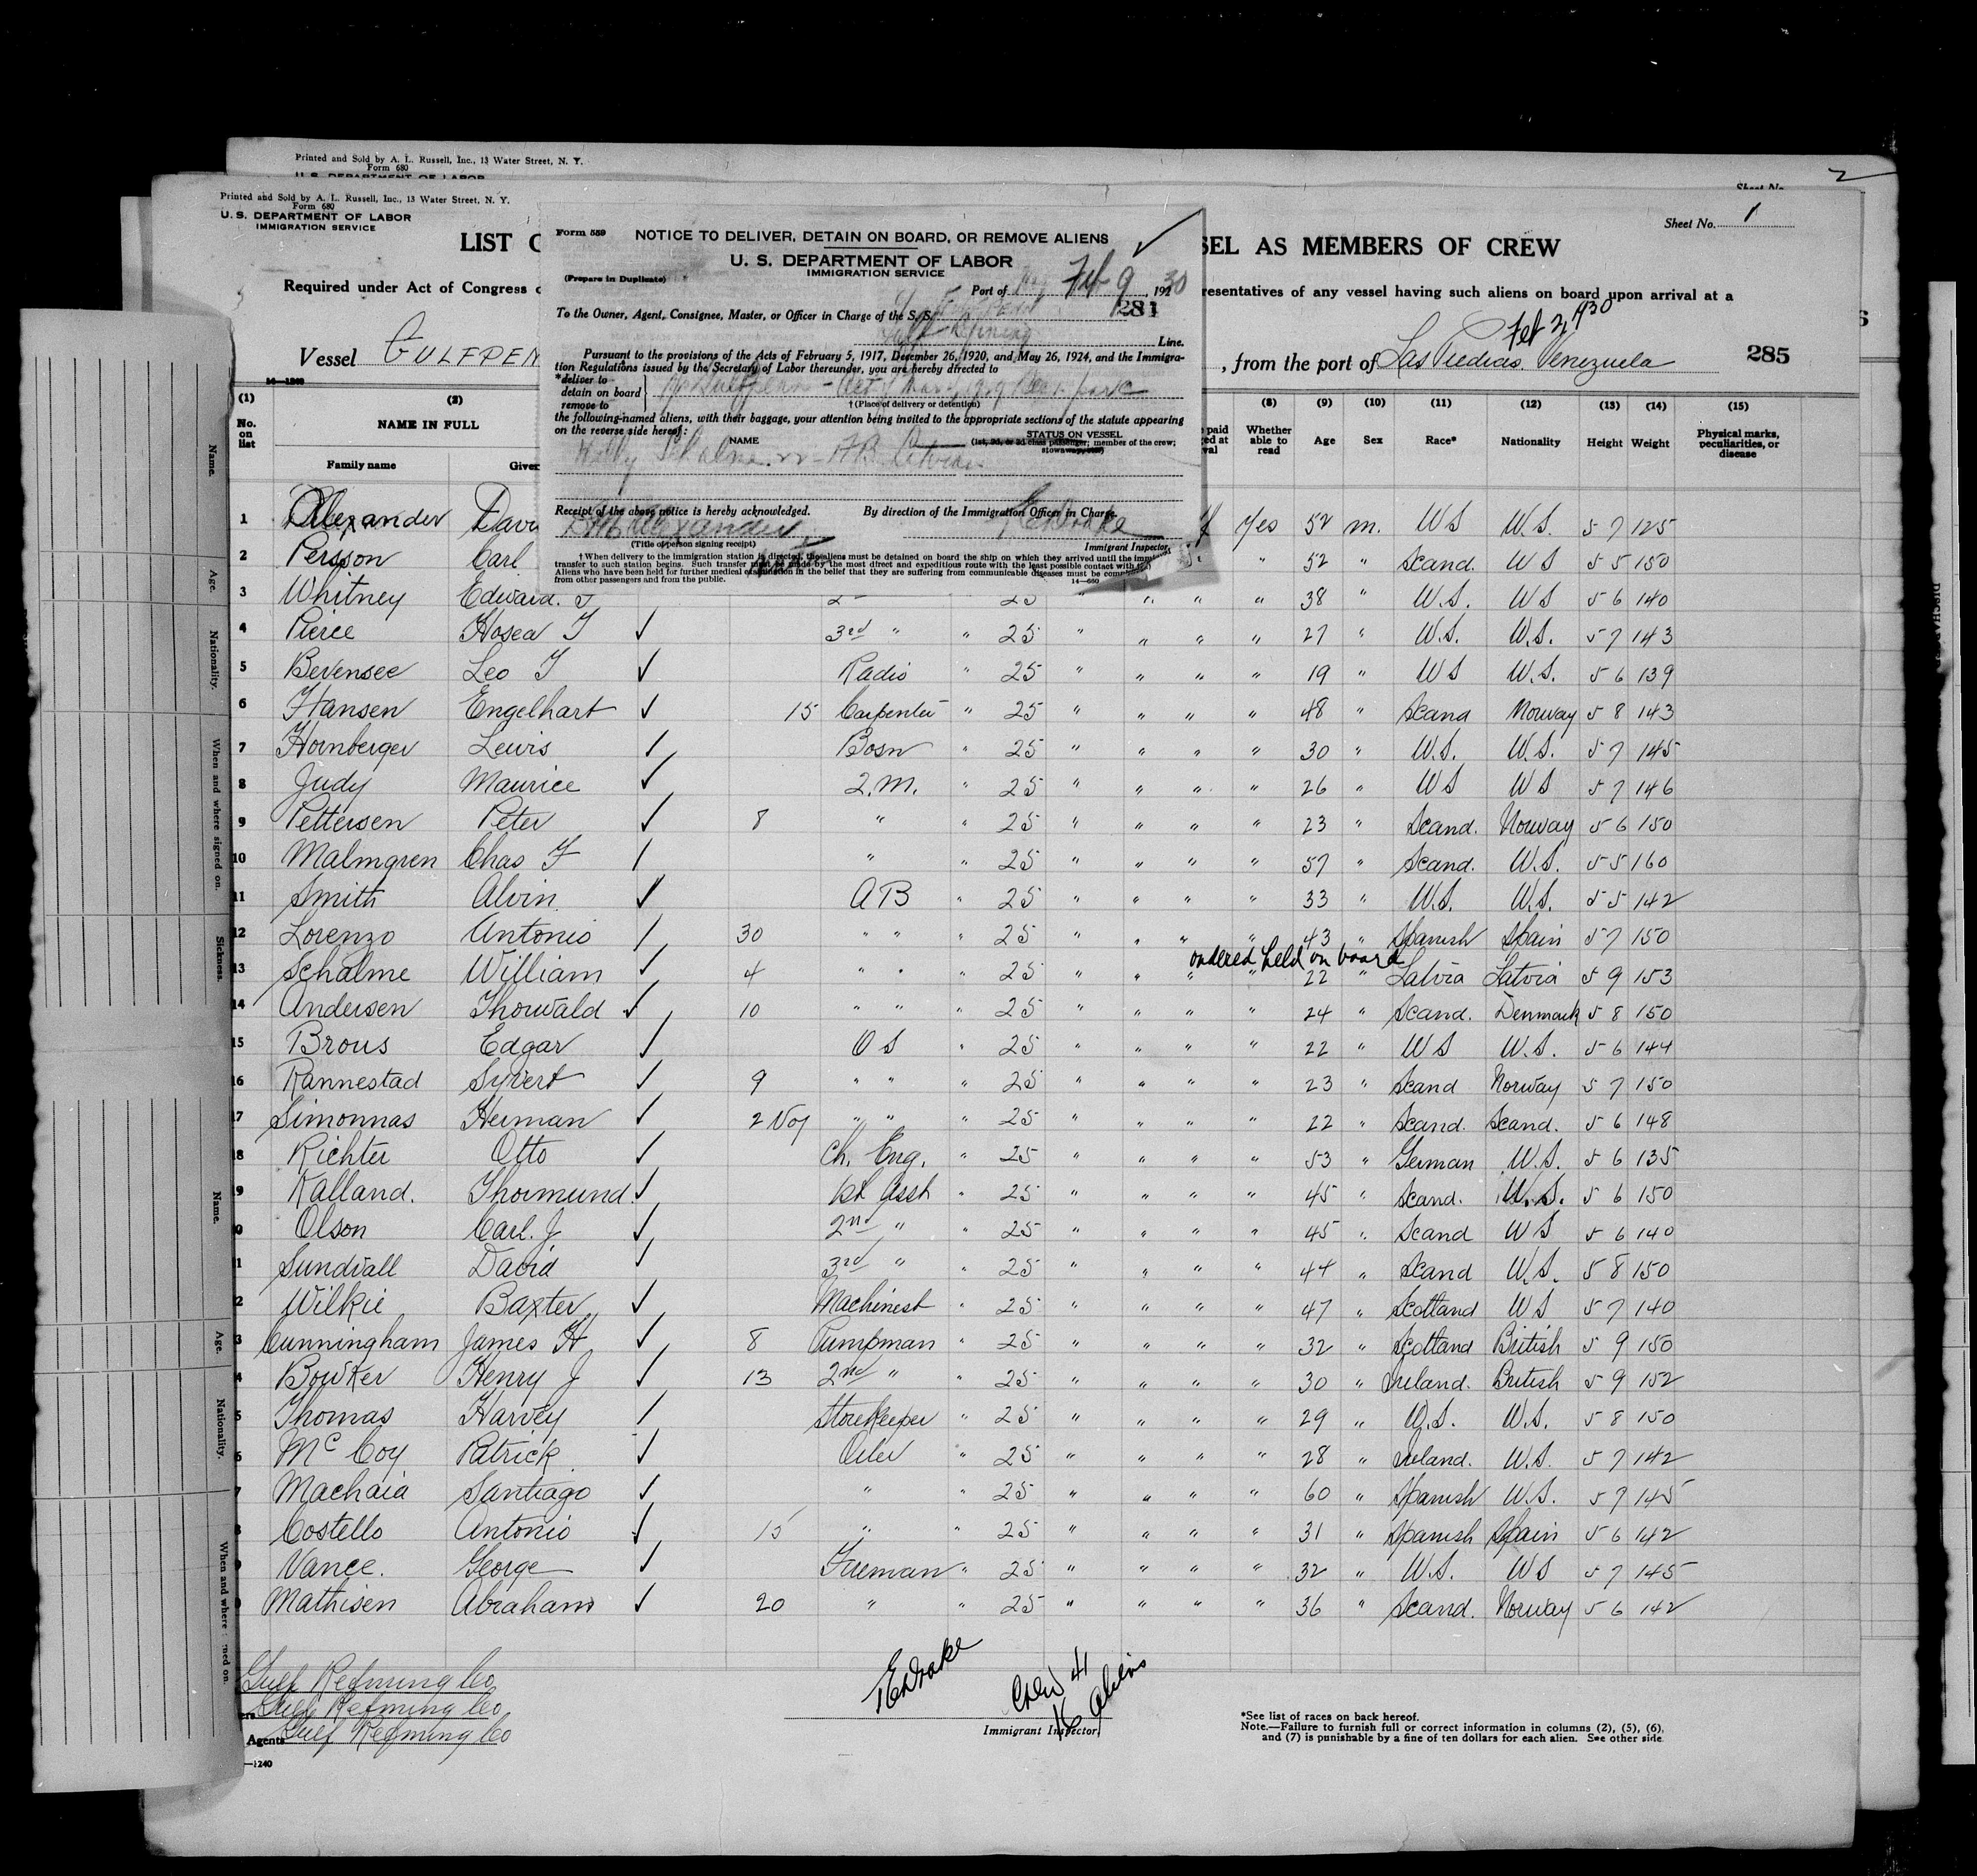 Printed and Sold by A. L. Russell, Inc., 13 Water Street, N. Y.
Form 680
U. S. DEPARTMENT OF LABOR
Sheet No. 2
Printed and Sold by A. L. Russell, Inc., 13 Water Street, N. Y.
Form 680
U. S. DEPARTMENT OF LABOR
IMMIGRATION SERVICE
Sheet No. 1
LIST O
SEL AS MEMBERS OF CREW
Required under Act of Congress o
resentatives of any vessel having such aliens on board upon arrival at a
Vessel GULFPEN
Feb 2, 1930
, from the port of Las Piedras Venezuela
285
Form 559
NOTICE TO DELIVER, DETAIN ON BOARD, OR REMOVE ALIENS
U. S. DEPARTMENT OF LABOR
IMMIGRATION SERVICE
(Prepare in Duplicate)
Port of Feb 9, 1930
281
To the Owner, Agent, Consignee, Master, or Officer in Charge of the S. S.
Gulf Refining Line.
Pursuant to the provisions of the Acts of February 5, 1917, December 26, 1920, and May 26, 1924, and the Immigra-
tion Regulations issued by the Secretary of Labor thereunder, you are hereby directed to
*deliver to
detain on board
remove to
†(Place of delivery or detention)
the following-named aliens, with their baggage, your attention being invited to the appropriate sections of the statute appearing
on the reverse side hereof:
NAME
STATUS ON VESSEL
(1st, 2d, or 3d class passenger; member of the crew;
stowaway, etc.)
Willy Schalme 22
Receipt of the above notice is hereby acknowledged.
By direction of the Immigration Officer in Charge.
Alexander
REDrake
(Title of person signing receipt)
Immigrant Inspector.
† When delivery to the immigration station is directed, the aliens must be detained on board the ship on which they arrived until the
transfer to such station begins. Such transfer must be made by the most direct and expeditious route with the least possible contact with
Aliens who have been held for further medical examination in the belief that they are suffering from communicable diseases must be
from other passengers and from the public.
14—680
(1) (2) (8) (9) (10) (11) (12) (13) (14) (15)
No. on list
NAME IN FULL
Family name
Given
Whether able to read
Age
Sex
Race*
Nationality
Height
Weight
Physical marks, peculiarities, or disease
1 Alexander Davi Yes 52 m. US U.S. 5 7 125
2 Persson Carl " 52 " Scand. US 5 5 150
3 Whitney Edward. J " " " 38 " U.S. US 5 6 140
4 Pierce Hosea T ✓ 3rd " " 25 " " " " 27 " U.S. U.S. 5 7 143
5 Bevensee Leo T ✓ Radio " 25 " " " " 19 " US U.S. 5 6 139
6 Hansen Engelhart ✓ 15 Carpenter " 25 " " " " 48 " Scand Norway 5 8 143
7 Hornberger Lewis ✓ Bosn " 25 " " " " 30 " U.S. U.S. 5 7 145
8 Judy Maurice ✓ Q.M. " 25 " " " " 26 " US US 5 7 146
9 Pettersen Peter ✓ 8 " " 25 " " " " 23 " Scand. Norway 5 6 150
10 Malmgren Chas F / " " 25 " " " " 57 " Scand. U.S. 5 5 160
11 Smith Alvin ✓ AB " 25 " " " " 33 " U.S. U.S. 5 5 142
12 Lorenzo Antonio / 30 " " " 25 " " " " 43 " Spanish Spain 5 7 150
ordered held on board
13 Schalme William ✓ 4 " " " 25 " " " " 22 " Latvia Latvia 5 9 153
14 Andersen Thorwald ✓ 10 " " " 25 " " " " 24 " Scand. Denmark 5 8 150
15 Brous Edgar ✓ OS " 25 " " " " 22 " US U.S. 5 6 144
16 Rannestad Syvert ✓ 9 " " " 25 " " " " 23 " Scand Norway 5 7 150
17 Simonnas Herman ✓ 2 Voy " " " 25 " " " " 22 " Scand. Scand. 5 6 148
18 Richter Otto ✓ Ch. Eng. " 25 " " " " 53 " German U.S. 5 6 135
9 Kalland. Thormund. ✓ 1st Asst " 25 " " " " 45 " Scand. U.S. 5 6 150
0 Olson Carl. J ✓ 2nd " " 25 " " " " 45 " Scand US 5 6 140
1 Sundvall David ✓ 3rd " " 25 " " " " 44 " Scand U.S. 5 8 150
2 Wilkie Baxter ✓ Machinest " 25 " " " " 47 " Scotland US 5 7 140
3 Cunningham James H ✓ 8 Pumpman " 25 " " " " 32 " Scotland British 5 9 150
4 Bowker Henry J ✓ 13 2nd " " 25 " " " " 30 " Ireland. British 5 9 152
5 Thomas Harvey / StoreKeeper " 25 " " " " 29 " U.S. U.S. 5 8 150
6 McCoy Patrick ✓ Oiler " 25 " " " " 28 " Ireland. U.S. 5 7 142
7 Machaia Santiago ✓ " " 25 " " " " 60 " Spanish U.S. 5 7 145
8 Costello Antonio ✓ 15 " " 25 " " " " 31 " Spanish Spain 5 6 142
9 Vance. George ✓ Fireman " 25 " " " " 32 " U.S. US 5 7 145
0 Mathisen Abraham ✓ 20 " " 25 " " " " 36 " Scand. Norway 5 6 142
Gulf Refining Co
Gulf Refining Co
Agents Gulf Refining Co
REDrake
Crew 41
16 Aliens
Immigrant Inspector
*See list of races on back hereof.
Note.—Failure to furnish full or correct information in columns (2), (5), (6),
and (7) is punishable by a fine of ten dollars for each alien. See other side.
—1240
Name.
Age.
Nationality.
When and where signed on.
Sickness.
Name.
Age.
Nationality.
When and where